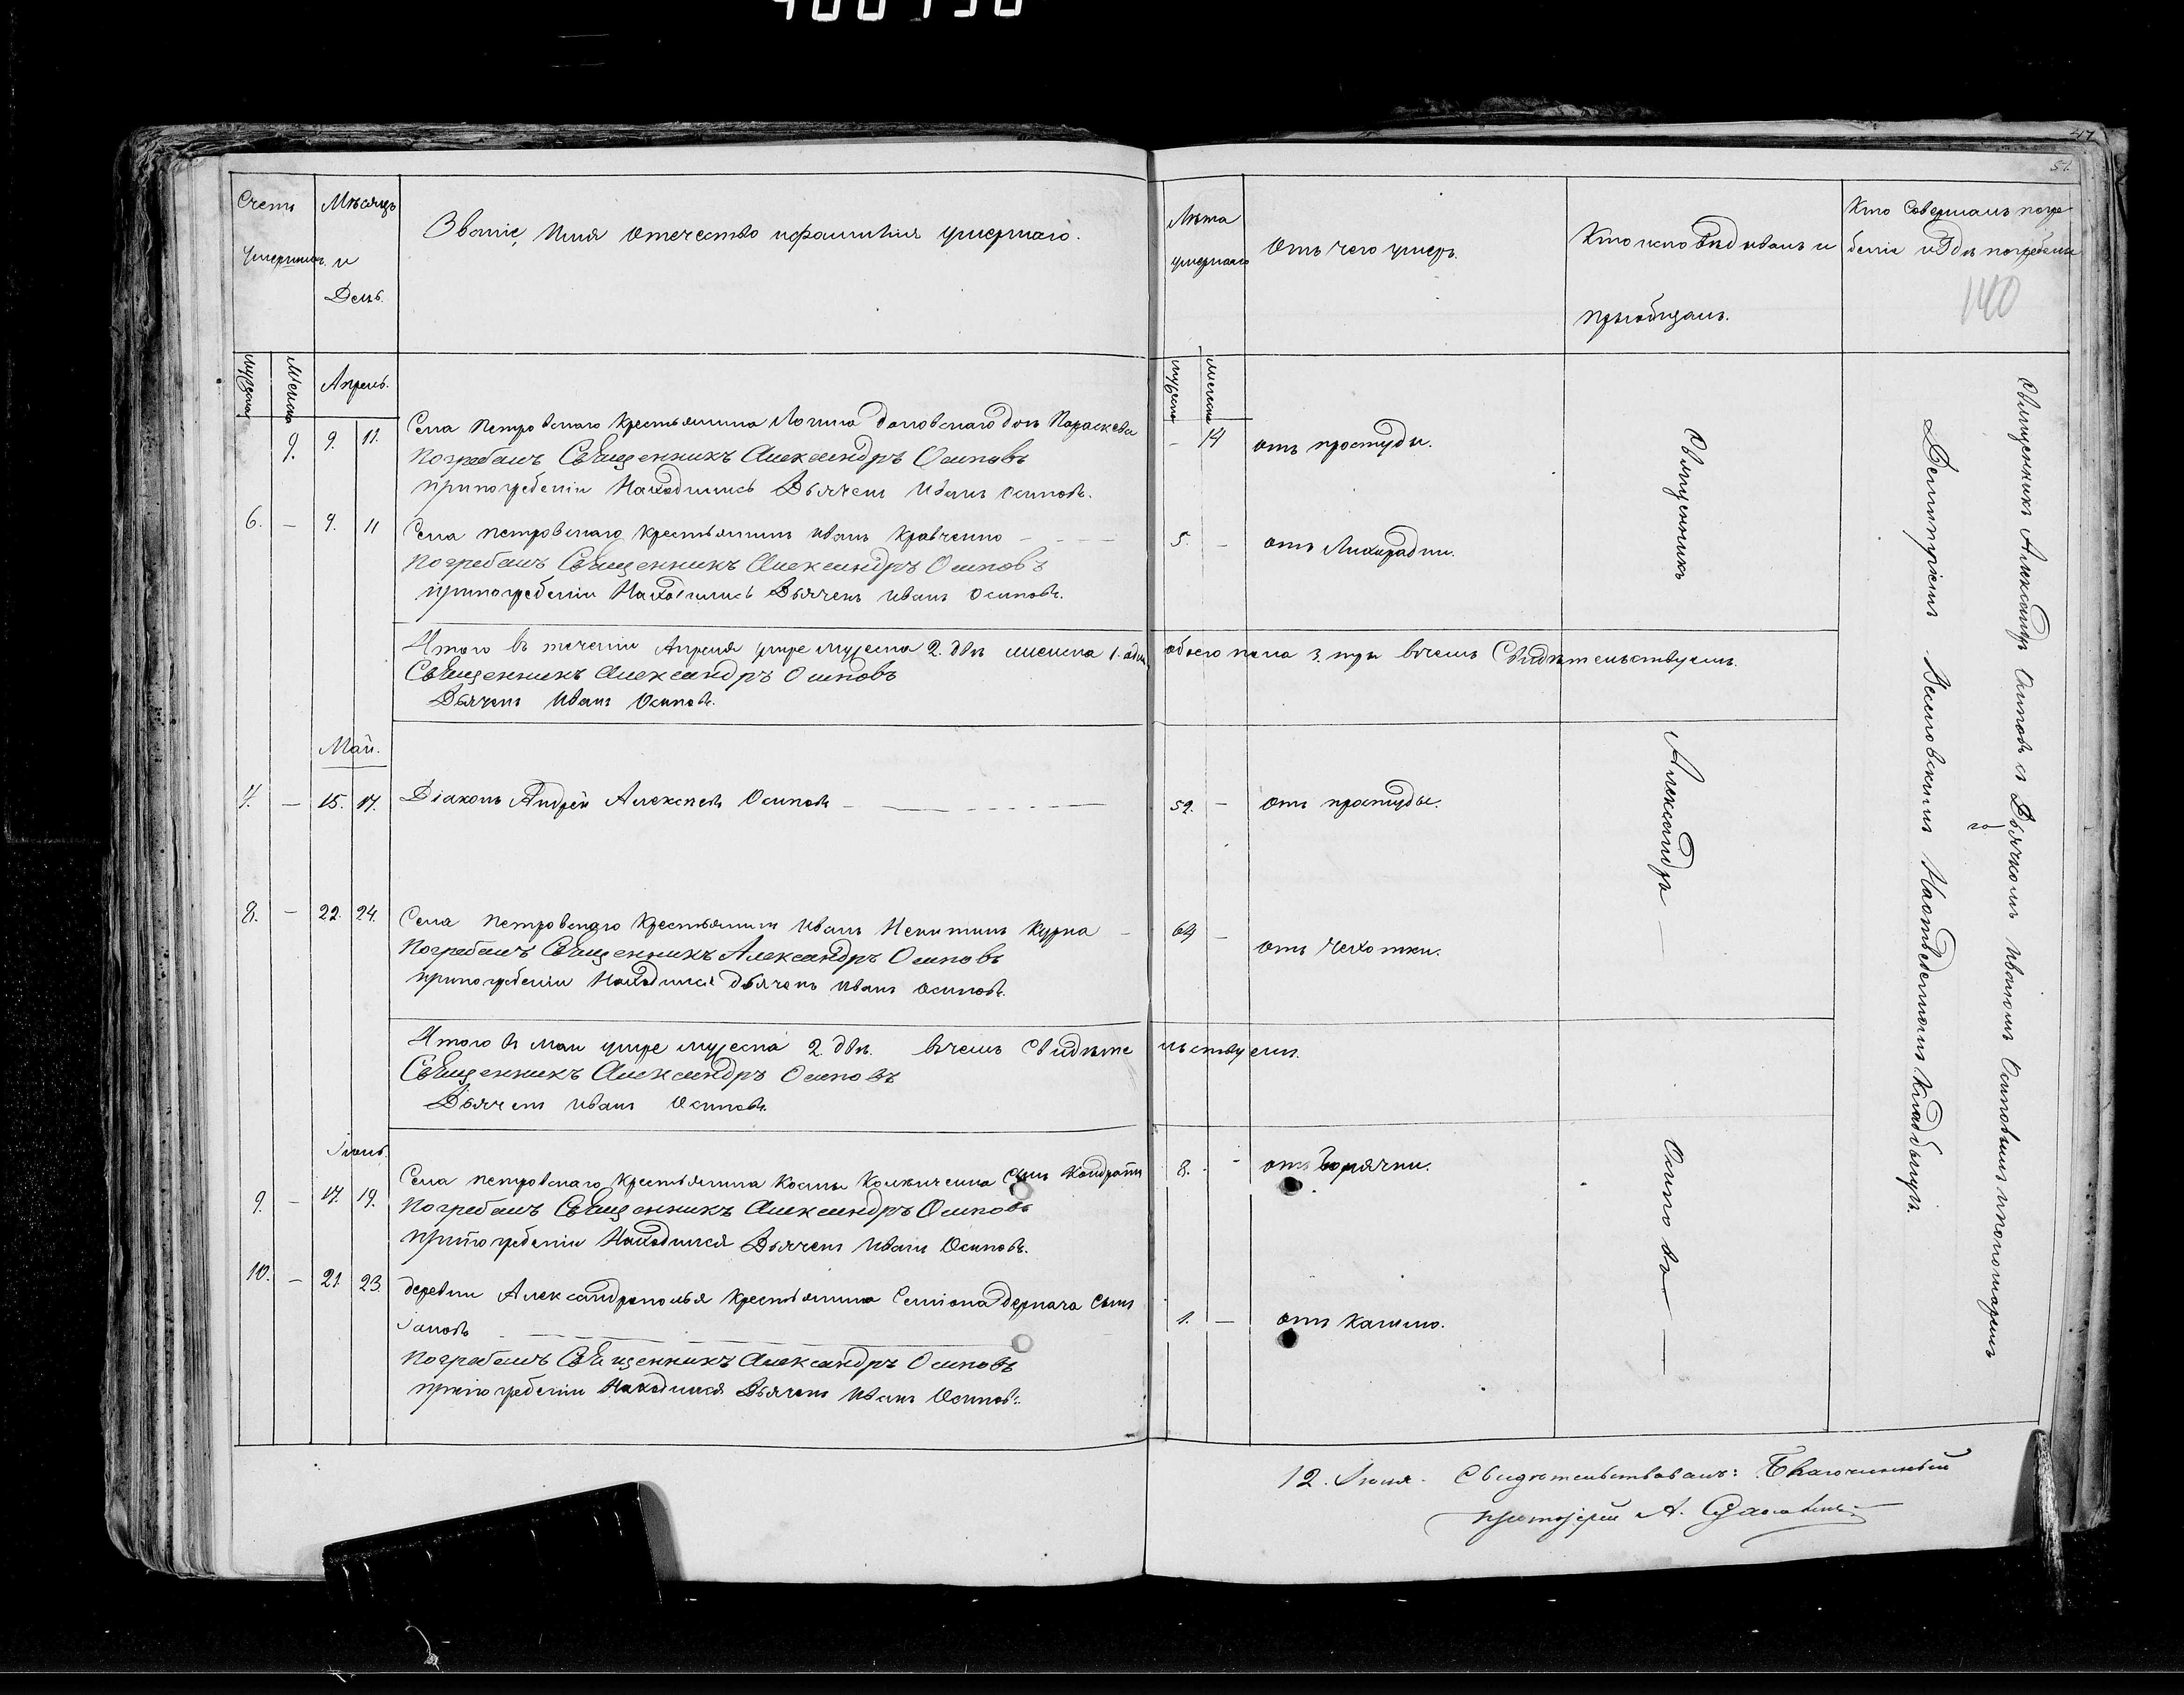 400750
47
51.
140
Счетъ умершихъ.
Мѣсяцъ и День.
Званіе, Имя Отечество и фамилія умершаго.
Лѣта умершаго
Отъ чего умеръ.
Кто исповѣдывалъ и пріобщалъ.
Кто совершалъ погребеніе и Гдѣ погребены
мужеска
женска
мужеска
женска
Апрель.
9. 9. 11. Села Петровскаго Крестьянина дочь Параскева - 14 отъ простуды.
Погребалъ Священникъ Александръ Осиповъ
при погребеніи Находились Дьячекъ Иванъ Осиповъ.
6. — 9. 11 Села Петровскаго Крестьянинъ Иванъ Кравченко 5. — отъ Лихорадки.
Погребалъ Священникъ Александръ Осиповъ
при погребеніи Находились Дьячекъ Иванъ Осиповъ.
Итого въ теченіи Апреля умре мужеска 2. двѣ женска 1. одна обоего пола 3. три въ чемъ Свидѣтельствуемъ.
Священникъ Александръ Осиповъ
Дьячекъ Иванъ Осиповъ.
Май.
7. — 15. 17. Діаконъ Андрей Алексѣевъ Осиповъ 59. — отъ простуды.
8. — 22. 24. Села Петровскаго Крестьянинъ Иванъ Никитинъ Курка 64 — отъ чехотки.
Погребалъ Священникъ Александръ Осиповъ
при погребеніи Находился дьячекъ Иванъ Осиповъ.
Итого въ маи умре мужеска 2. двѣ. въ чемъ Свидѣтельствуемъ.
Священникъ Александръ Осиповъ
Дьячекъ Иванъ Осиповъ.
9. — 17. 19. Села Петровскаго Крестьянина Космы сынъ Кондратъ 8. - отъ Горячки.
Погребалъ Священникъ Александръ Осиповъ
при погребеніи Находился Дьячекъ Иванъ Осиповъ.
10. — 21. 23. деревни Александрополья Крестьянина Семіона Дернача Сынъ 1. — отъ Кашлю.
Іаковъ
Погребалъ Священникъ Александръ Осиповъ
при погребеніи Находился Дьячекъ Иванъ Осиповъ.
Священникъ
Александръ —
Осиповъ —
Священникъ Александръ Осиповъ съ Дьячкомъ Иваномъ Осиповымъ и пономаремъ
Димитріемъ На отведенномъ Кладбищѣ.
12. Іюля. Свидѣтельствовалъ: Благочинный
протоіерей А.